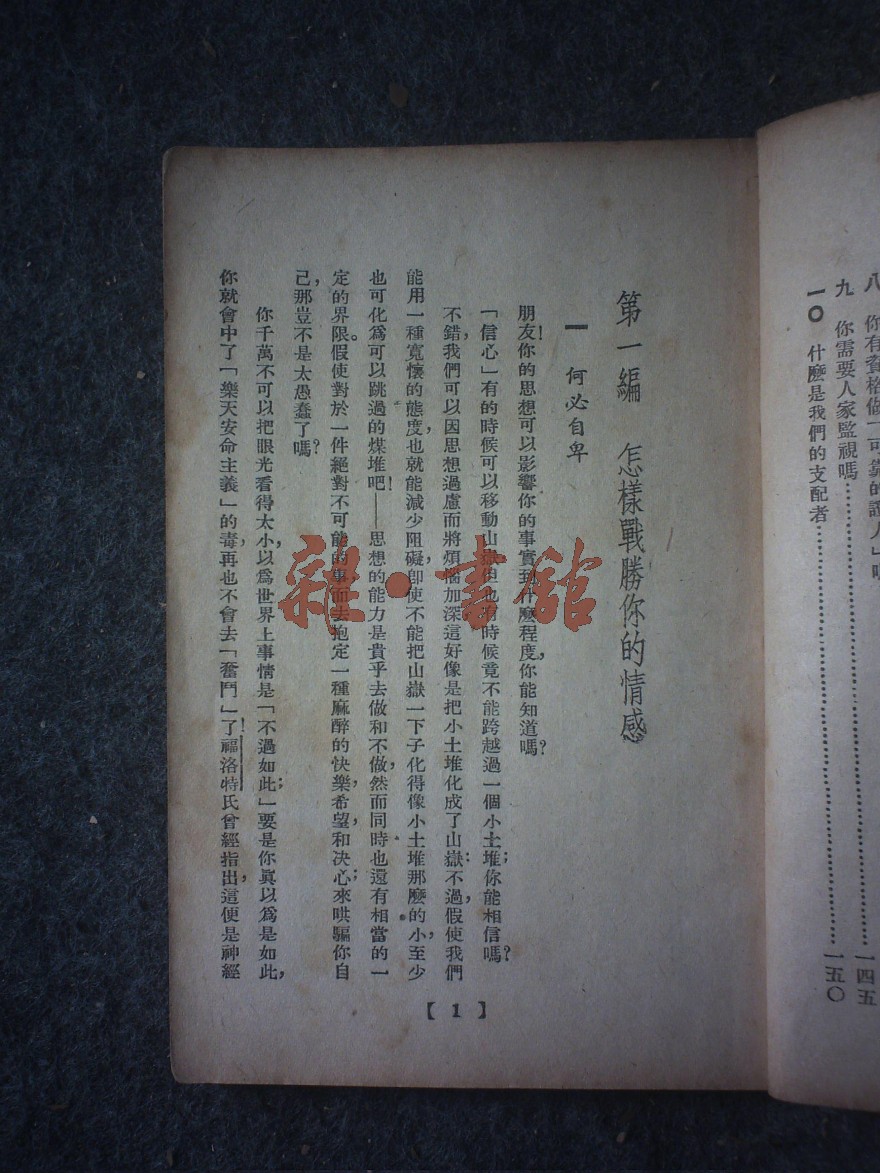 八 你有資格做「可靠的證人」嗎
九 你需要人家監視嗎⋯⋯⋯⋯⋯⋯一四五
一〇 什麼是我們的支配者⋯⋯⋯⋯⋯⋯一五〇
第一編 怎樣戰勝你的情感
一 何必自卑
朋友!你的思想可以影響你的事實到什麼程度,你能知道嗎?
「信心」有的時候可以移動山嶽但也有時候竟不能跨越過一個小土堆;你能相信嗎?
不錯,我們可以因思想過慮而將煩惱加深這好像是把小土堆化成了山嶽:不過,假使我們
能用一種寬懷的態度,也就能減少阻礙,卽使不能把山嶽一下子化得像小土堆那麼的小,至少
也可化爲可以跳過的煤堆吧!——思想的能力是貴乎去做和不做,然而同時也還有相當的一
定的界限。假使對於一件絕對不可能的事而去抱定一種麻醉的快樂,希望,和決心;來哄騙你自
己,那豈不是太愚蠢了嗎?
你千萬不可以把眼光看得太小,以爲世界上事情是「不過如此;」要是你眞以爲是如此,
你就會中了「樂天安命主義」的毒,再也不會去「奮鬥」了!福洛特氏曾經指出,這便是神經
【1】
雜·書館